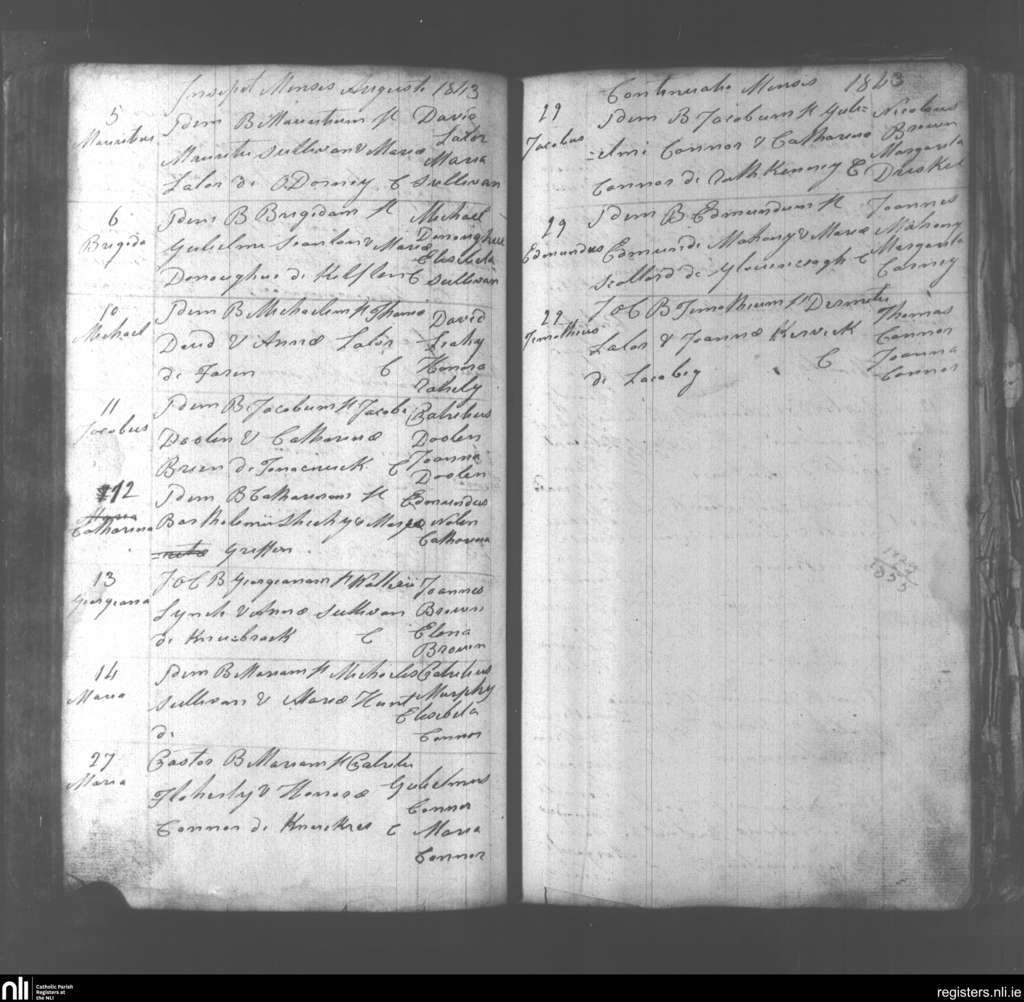 Incipit Mensis Augusti 1843
5
Mauritius
Idem B Mauritium fl
Mauritii Sullivan & Mariæ
Lalor de ODorney C
David
Lalor
Maria
Sullivan
6
Brigida
Idem B Brigidam fl
Gulielmi Scanlan & Mariæ
Donoughue de Kilflen C
Michael
Donoughue
Elisabeta
Sullivan
10
Michael
Idem B Michaelem fl
Deud & Annæ Lalor
de Faren C
David
Leahy
Honora
11
Jacobus
Idem B Jacobum fl Jacobi
Doolen & Catharinæ
Brien de C
Patritius
Doolen
Joanna
Doolen
12
Maria
Catharina
Idem B Catharinam fl
Bartholemii Sheehy &
Griffen
Edmundus
Nolen
Catharina
13
Georgeana
J O C B Georgeanam fl
Lynch & Annæ Sullivan
de Knuckbrack C
Joannes
Brown
Elena
Brown
14
Maria
Idem B Mariam fl Michaelis
Sullivan & Mariæ Hunt
de
Patritius
Murphy
Elisabeta
Connor
27
Maria
Pastor B Mariam fl Patritii
Floherty & Honoræ
Connor de C
Gulielmus
Connor
Maria
Connor
Continuatio Mensis 1843
29
Jacobus
Idem B Jacobum fl Guli=
=elmi Connor & Catharinæ
Connor de Rath Kenney C
Nicolaus
Brown
Margarita
29
Edmundus
Idem B Edmundum fl
Edmundi Mahony & Mariæ
Scollard de C
Joannes
Mahony
Margarita
Carney
29
Timotheus
J O C B Timotheum fl Dermitii
Lalor & Joannæ Kerwick
de Lacabey C
Thomas
Connor
Joanna
Connor
1855
nli
Catholic Parish
Registers at
the NLI
registers.nli.ie